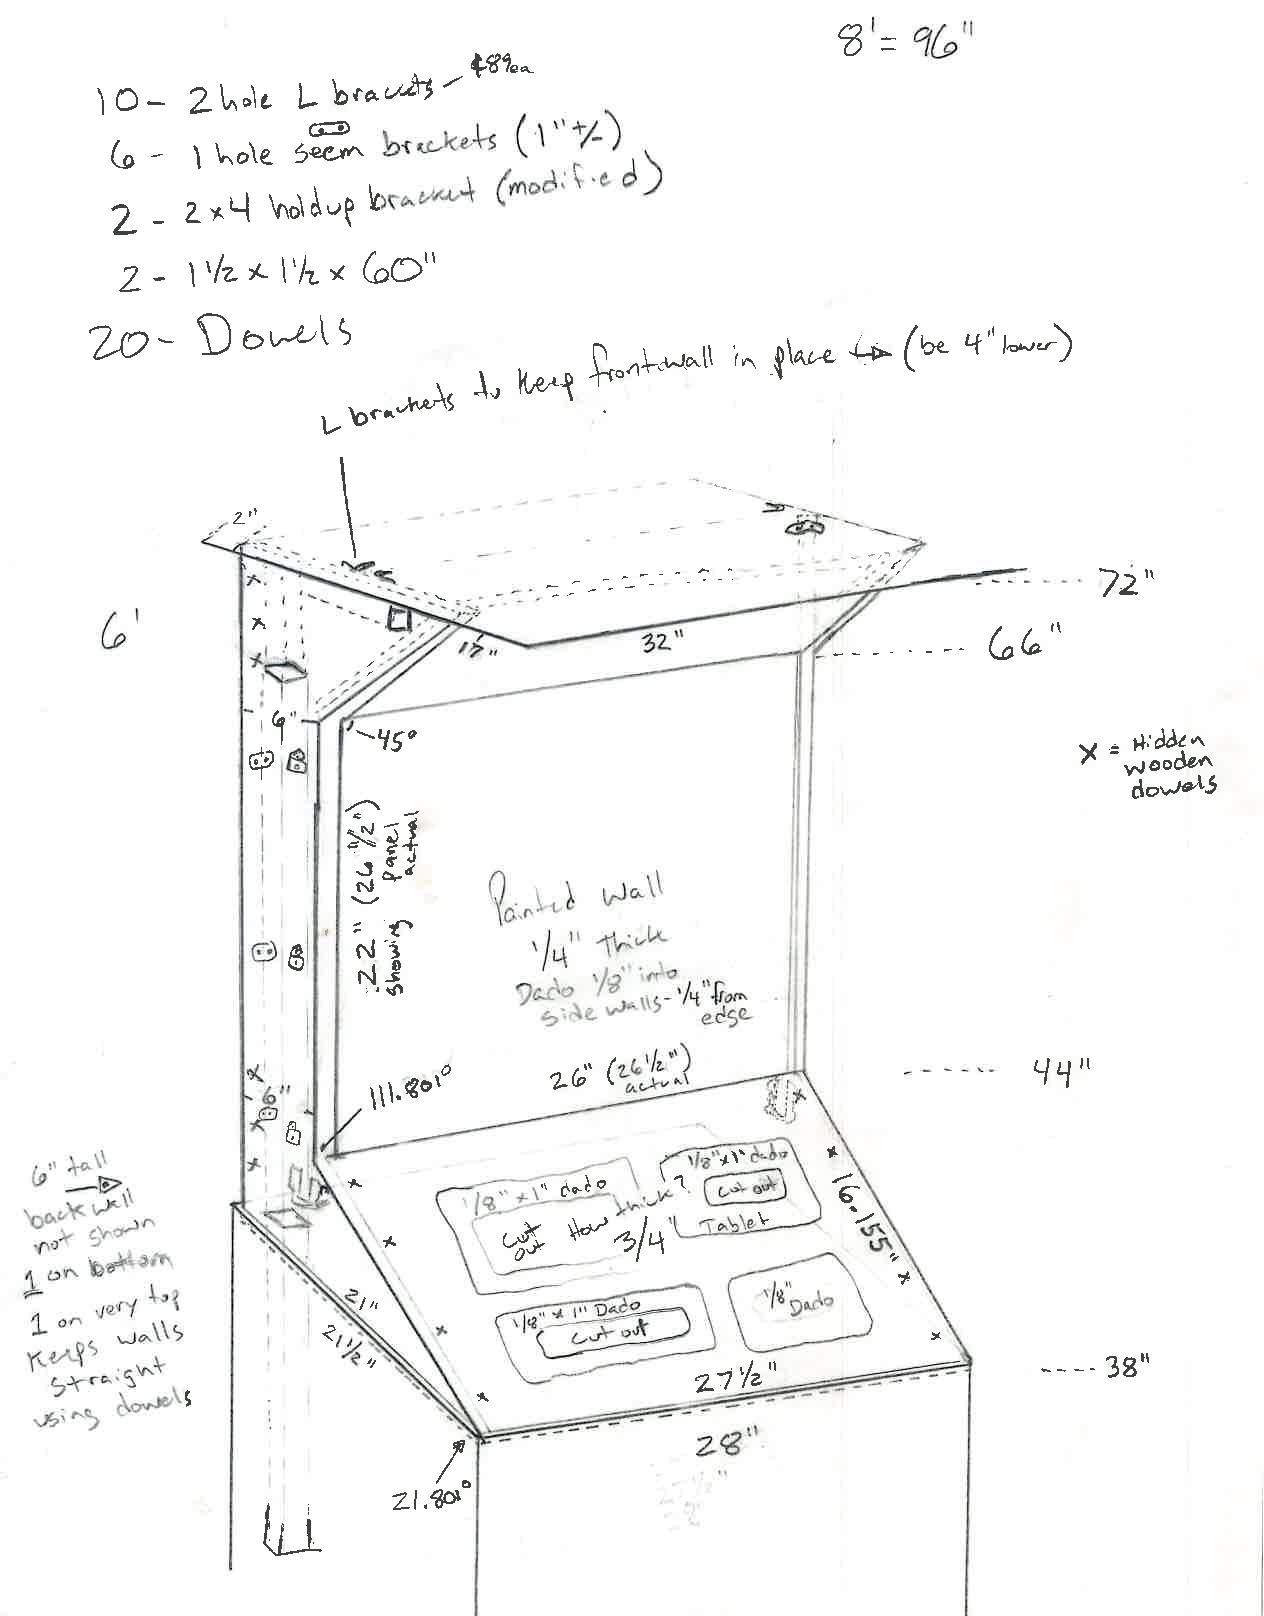 8' = 96"
10 - 2 hole L brackets - ¢89ea
6 - 1 hole seem brackets (1" +/-)
2 - 2x4 holdup bracket (modified)
2 - 1 1/2 x 1 1/2 x 60"
20 - Dowels
L brackets to keep front wall in place (be 4" lower)
2"
6'
72"
32"
66"
6"
45°
X = Hidden
wooden
dowels
22" (26 1/2")
showing panel
actual
Painted Wall
1/4" thick
Dado 1/8" into
side walls - 1/4" from
edge
26" (26 1/2")
actual
44"
111.801°
6"
6" tall
back wall
not shown
1 on bottom
1 on very top
keeps walls
straight
using dowels
1/8" x 1" dado
cut
out
How thick?
3/4"
1/8" x 1" dado
cut out
Tablet
16.155"
1/8" x 1" Dado
cut out
1/8"
Dado
21"
21 1/2"
27 1/2"
38"
28"
21.801°